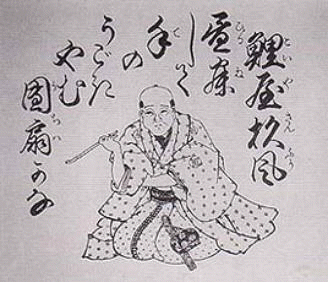 鯉屋杉風
昼寐
して
手の
うごき
やむ
團扇かな